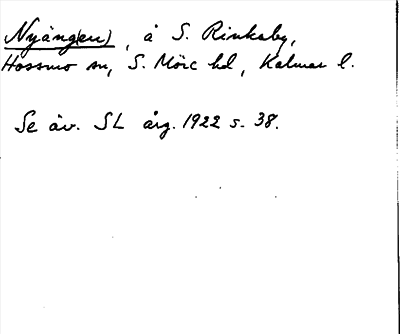 Nyäng(en), å S. Rinkaby,
Hossmo sn, S. Möre hd, Kalmar l.
Se äv. SL årg. 1922 s. 38.